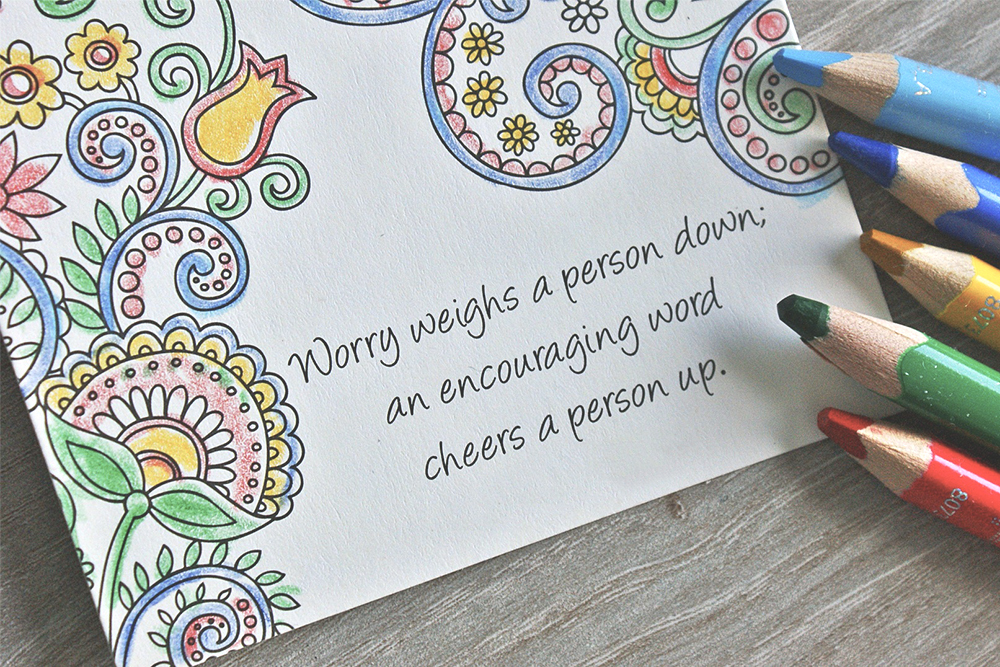 Worry weighs a person down;
an encouraging word
cheers a person up.